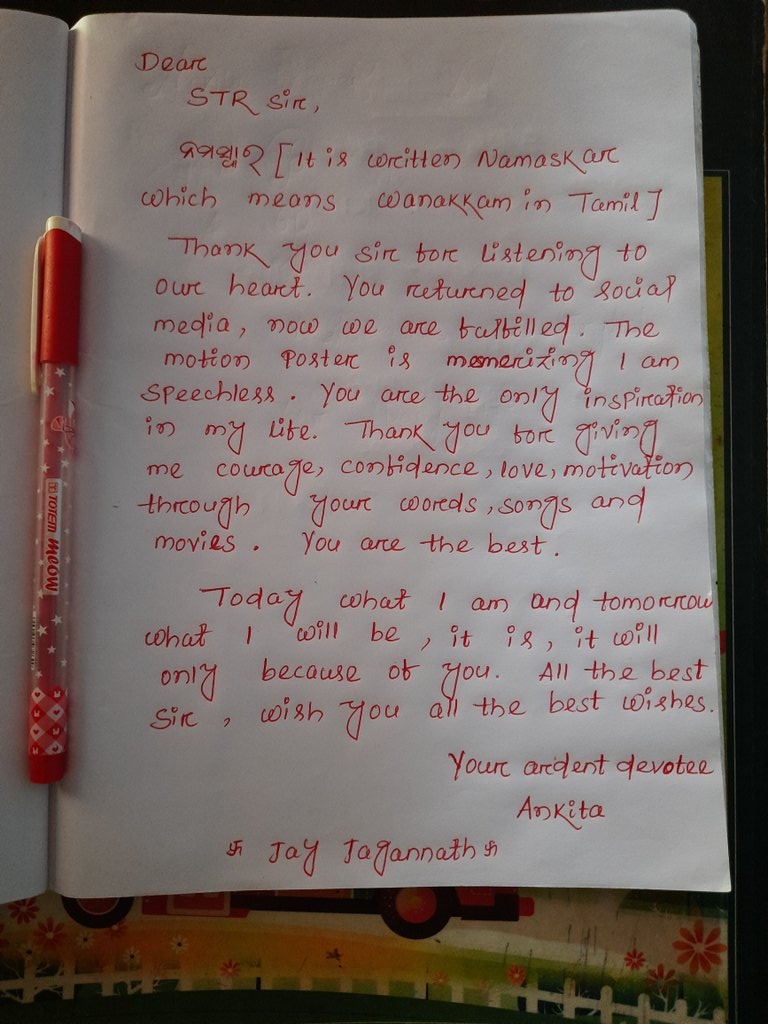 Dear
STR Sir,
ନମସ୍କାର [It is written Namaskar
which means wanakkam in Tamil]
Thank you sir for listening to
our heart. You returned to social
media, now we are fulfilled. The
motion poster is mesmerizing I am
speechless. You are the only inspiration
in my life. Thank you for giving
me courage, confidence, love, motivation
through your words, songs and
movies. You are the best.
Today what I am and tomorrow
what I will be, it is, it will
only because of you. All the best
Sir, wish you all the best wishes.
Your ardent devotee
Ankita
卐 Jay Jagannath 卐
TOTEM MEOW